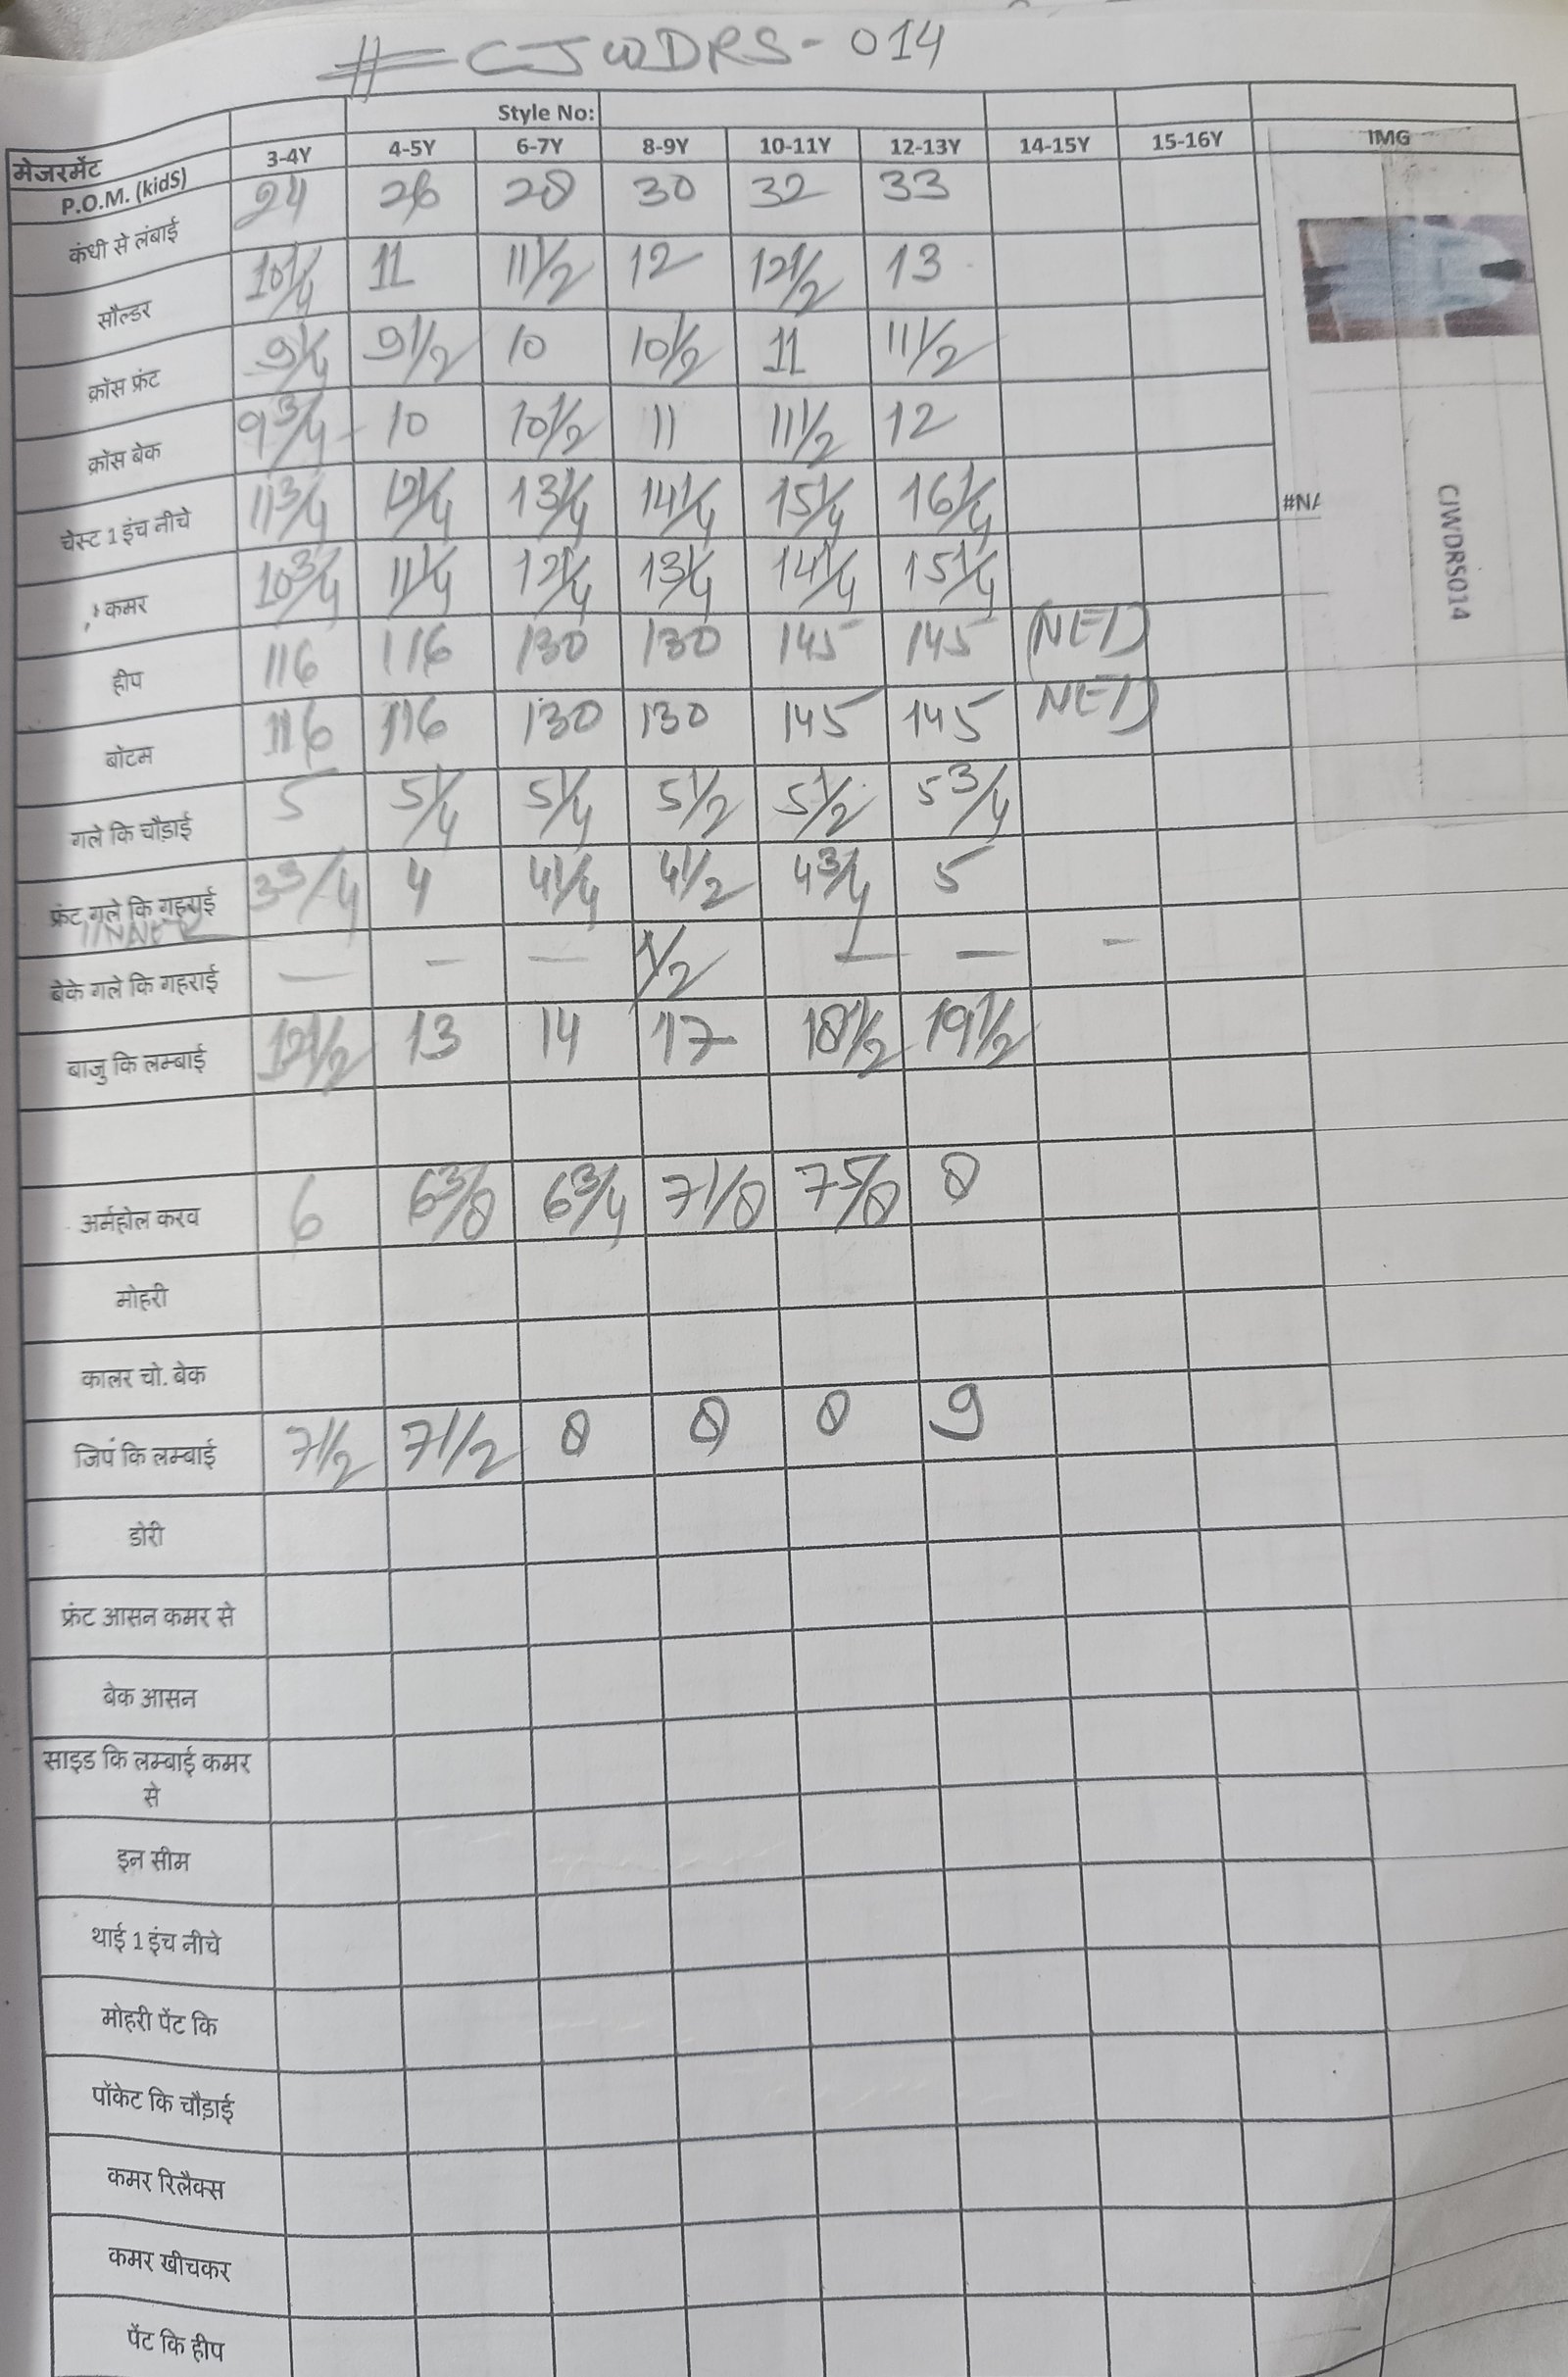 # CJWDRS-014
Style No:
मेजरमेंट P.O.M. (kidS) 3-4Y 4-5Y 6-7Y 8-9Y 10-11Y 12-13Y 14-15Y 15-16Y IMG
कंधी से लंबाई 24 26 28 30 32 33
सौल्डर 10 1/4 11 11 1/2 12 12 1/2 13
क्रॉस फ्रंट 9 1/4 9 1/2 10 10 1/2 11 11 1/2
क्रॉस बेक 9 3/4 10 10 1/2 11 11 1/2 12
चेस्ट 1 इंच नीचे 11 3/4 12 1/4 13 1/4 14 1/4 15 1/4 16 1/4 #N/
कमर 10 3/4 11 1/4 12 1/4 13 1/4 14 1/4 15 1/4
CJWDRS014
हीप 116 116 130 130 145 145 (NET)
बोटम 116 116 130 130 145 145 NET)
गले कि चौड़ाई 5 5 1/4 5 1/4 5 1/2 5 1/2 5 3/4
फ्रंट गले कि गहराई 3 3/4 4 4 1/4 4 1/2 4 3/4 5
INNER
बेके गले कि गहराई — — — 1/2 — — —
बाजु कि लम्बाई 12 1/2 13 14 17 18 1/2 19 1/2
अर्महोल करव 6 6 3/8 6 3/4 7 1/8 7 5/8 8
मोहरी
कालर चो. बेक
जिपं कि लम्बाई 7 1/2 7 1/2 8 8 8 9
डोरी
फ्रंट आसन कमर से
बेक आसन
साइड कि लम्बाई कमर
से
इन सीम
थाई 1 इंच नीचे
मोहरी पेंट कि
पॉकेट कि चौड़ाई
कमर रिलैक्स
कमर खीचकर
पेंट कि हीप